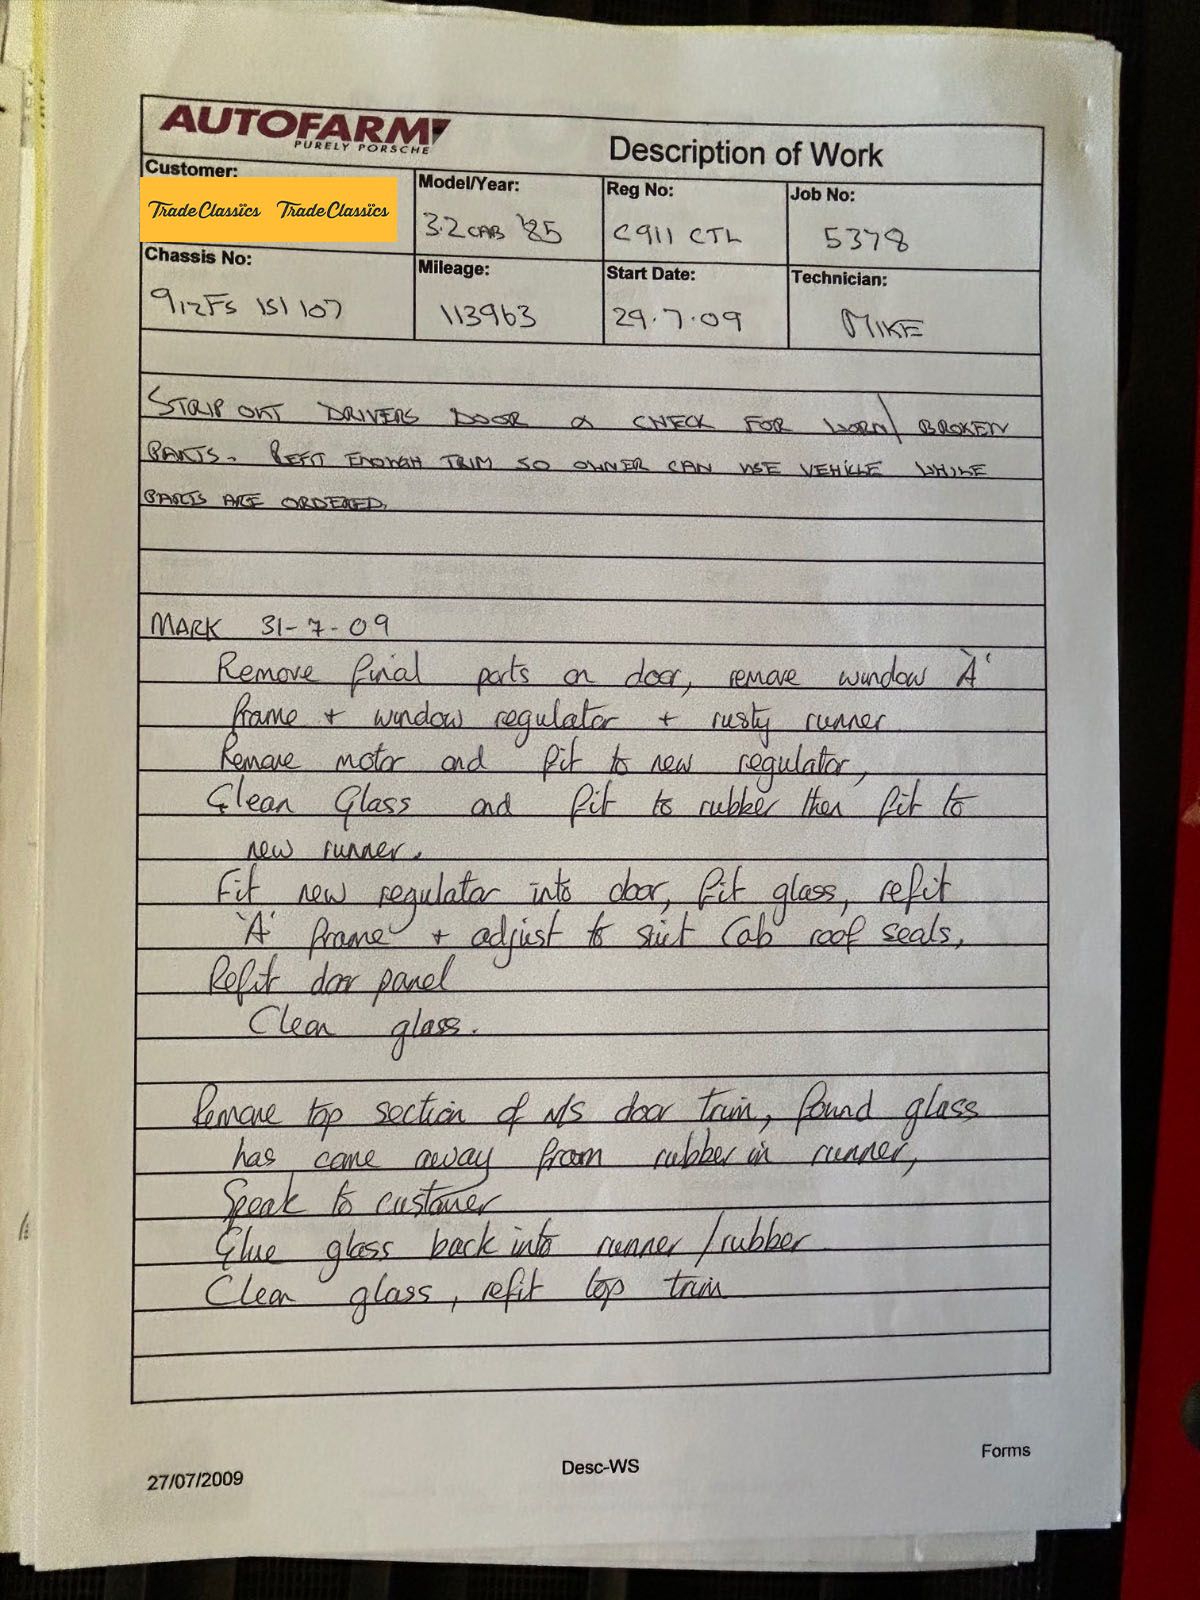 AUTOFARM
PURELY PORSCHE
Description of Work
Customer:
TradeClassics TradeClassics
Model/Year:
3.2 CAB '85
Reg No:
C911 CTL
Job No:
5378
Chassis No:
912FS 151107
Mileage:
113963
Start Date:
29.7.09
Technician:
MIKE
STRIP OUT DRIVERS DOOR & CHECK FOR WORN/ BROKEN
PARTS. REFIT ENOUGH TRIM SO OWNER CAN USE VEHICLE WHILE
PARTS ARE ORDERED.
MARK 31-7-09
Remove final parts on door, remove window 'A'
frame + window regulator + rusty runner
Remove motor and fit to new regulator,
Clean Glass and fit to rubber then fit to
new runner.
Fit new regulator into door, fit glass, refit
'A' frame + adjust to suit Cab roof seals,
Refit door panel
Clean glass.
Remove top section of N/S door trim, found glass
has come away from rubber in runner,
Speak to customer
Glue glass back into runner/rubber
Clean glass, refit top trim
27/07/2009
Desc-WS
Forms